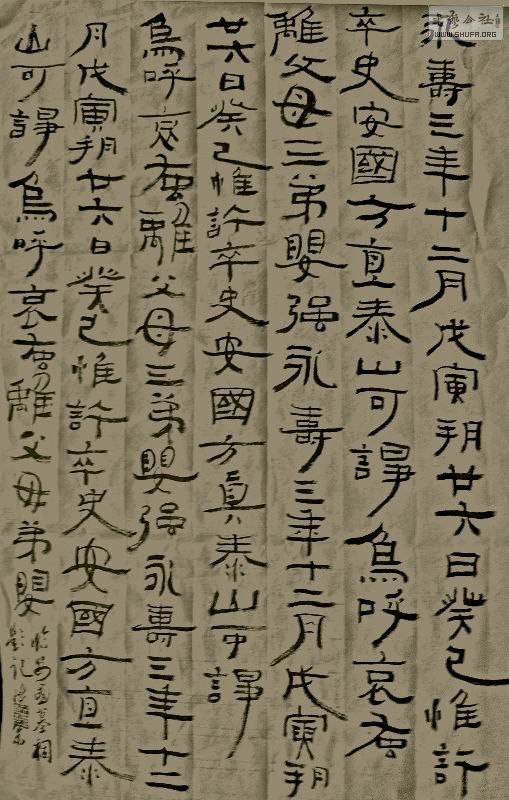 永壽三年十二月戊寅朔廿六日癸巳惟許
卒史安國方直泰山可諍烏呼哀哉
離父母三弟嬰强永壽三年十二月戊寅朔
廿六日癸巳惟許卒史安國方直泰山可諍
烏呼哀哉離父母三弟嬰强永壽三年十二
月戊寅朔廿六日癸巳惟許卒史安國方直泰
山可諍烏呼哀哉離父母弟嬰
WWW.SHUFA.ORG